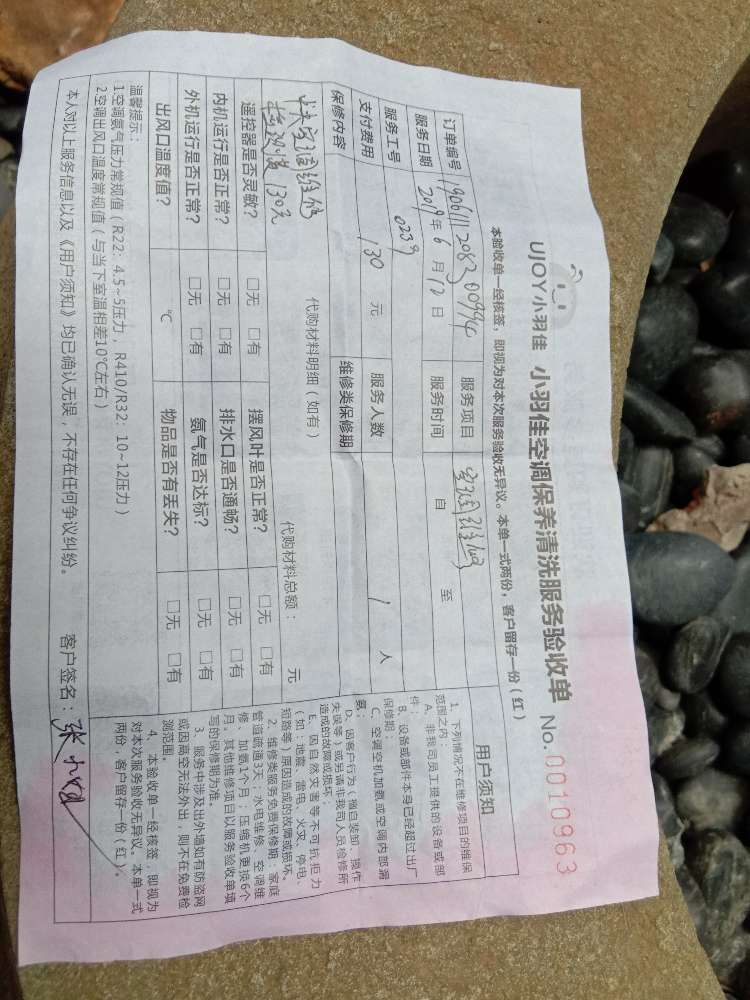 UJOY小羽佳 小羽佳空调保养清洗服务验收单 No.0010963
本验收单一经核签，即视为对本次服务验收无异议。本单一式两份，客户留存一份（红）
订单编号 服务项目 空调维修
服务日期 2019年6月12日 服务时间 自 至
服务工号 0239 服务人数 1 人
支付费用 130 元 维修类保修期
保修内容
代购材料明细（如有） 代购材料总额： 元
130元
遥控器是否灵敏？ □无 □有 摆风叶是否正常？ □无 □有
内机运行是否正常？ □无 □有 排水口是否通畅？ □无 □有
外机运行是否正常？ □无 □有 氨气是否达标？ □无 □有
出风口温度值？ ℃ 物品是否有丢失？ □无 □有
温馨提示：
1空调氨气压力常规值（R22：4.5~5压力，R410/R32：10~12压力）
2空调出风口温度常规值（与当下室温相差10℃左右）
本人对以上服务信息以及《用户须知》均已确认无误，不存在任何争议纠纷。 客户签名：
用户须知
1、下列情况不在维修项目的维保
范围之内：
A、非我司员工提供的设备或部
件；
B、设备或部件本身已经超过出厂
保修期；
C、空调空机加氨或空调内部漏
氨；
D、因客户行为（擅自装卸、操作
失误等）或另请非我司人员检修所
造成的故障或损坏；
E、因自然灾害等不可抗拒力
（如：地震、雷电、火灾、停电、
短路等）原因造成的故障或损坏。
2、维修类服务免费保修期：家庭
管道疏通3天；水电维修、空调维
修、加氨1个月；压缩机更换6个
月。其他维修项目以服务验收单填
写的保修期为准。
3、服务中涉及出外墙如有防盗网
或因高空无法外出，则不在免费检
测范围。
4、本验收单一经核签，即视为
对本次服务验收无异议。本单一式
两份，客户留存一份（红）。